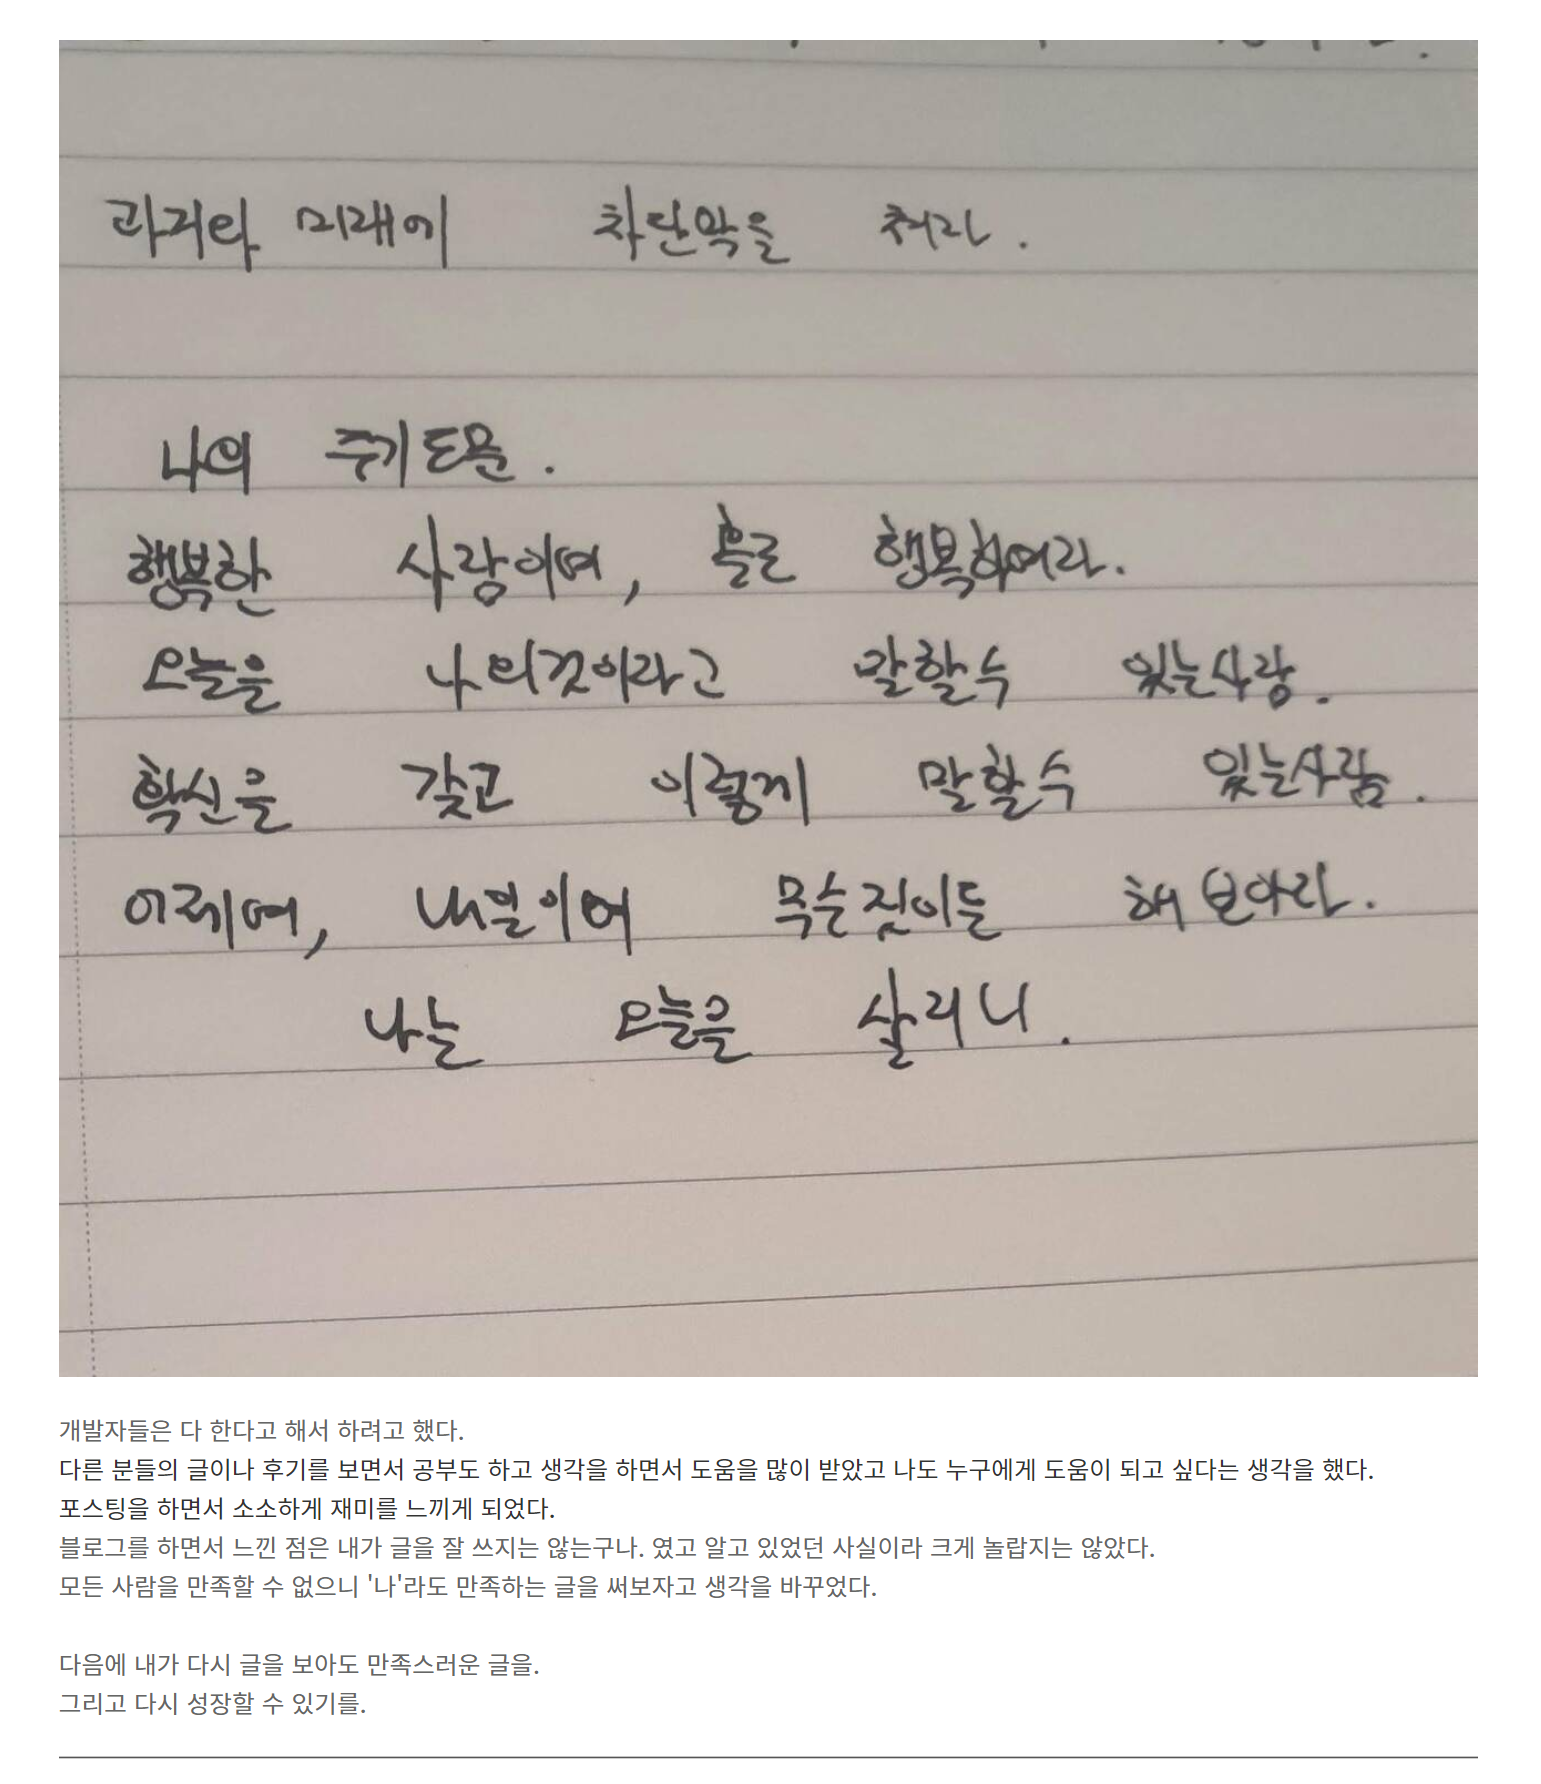 과거와 미래에 차단막을 쳐라.
나의 주기도문.
행복한 사람이여, 홀로 행복하여라.
오늘을 나의것이라고 말할수 있는사람.
확신을 갖고 이렇게 말할수 있는사람.
어제여, 내일이여 무슨짓이든 해보아라.
나는 오늘을 살리니.
개발자들은 다 한다고 해서 하려고 했다.
다른 분들의 글이나 후기를 보면서 공부도 하고 생각을 하면서 도움을 많이 받았고 나도 누구에게 도움이 되고 싶다는 생각을 했다.
포스팅을 하면서 소소하게 재미를 느끼게 되었다.
블로그를 하면서 느낀 점은 내가 글을 잘 쓰지는 않는구나. 였고 알고 있었던 사실이라 크게 놀랍지는 않았다.
모든 사람을 만족할 수 없으니 '나'라도 만족하는 글을 써보자고 생각을 바꾸었다.
다음에 내가 다시 글을 보아도 만족스러운 글을.
그리고 다시 성장할 수 있기를.